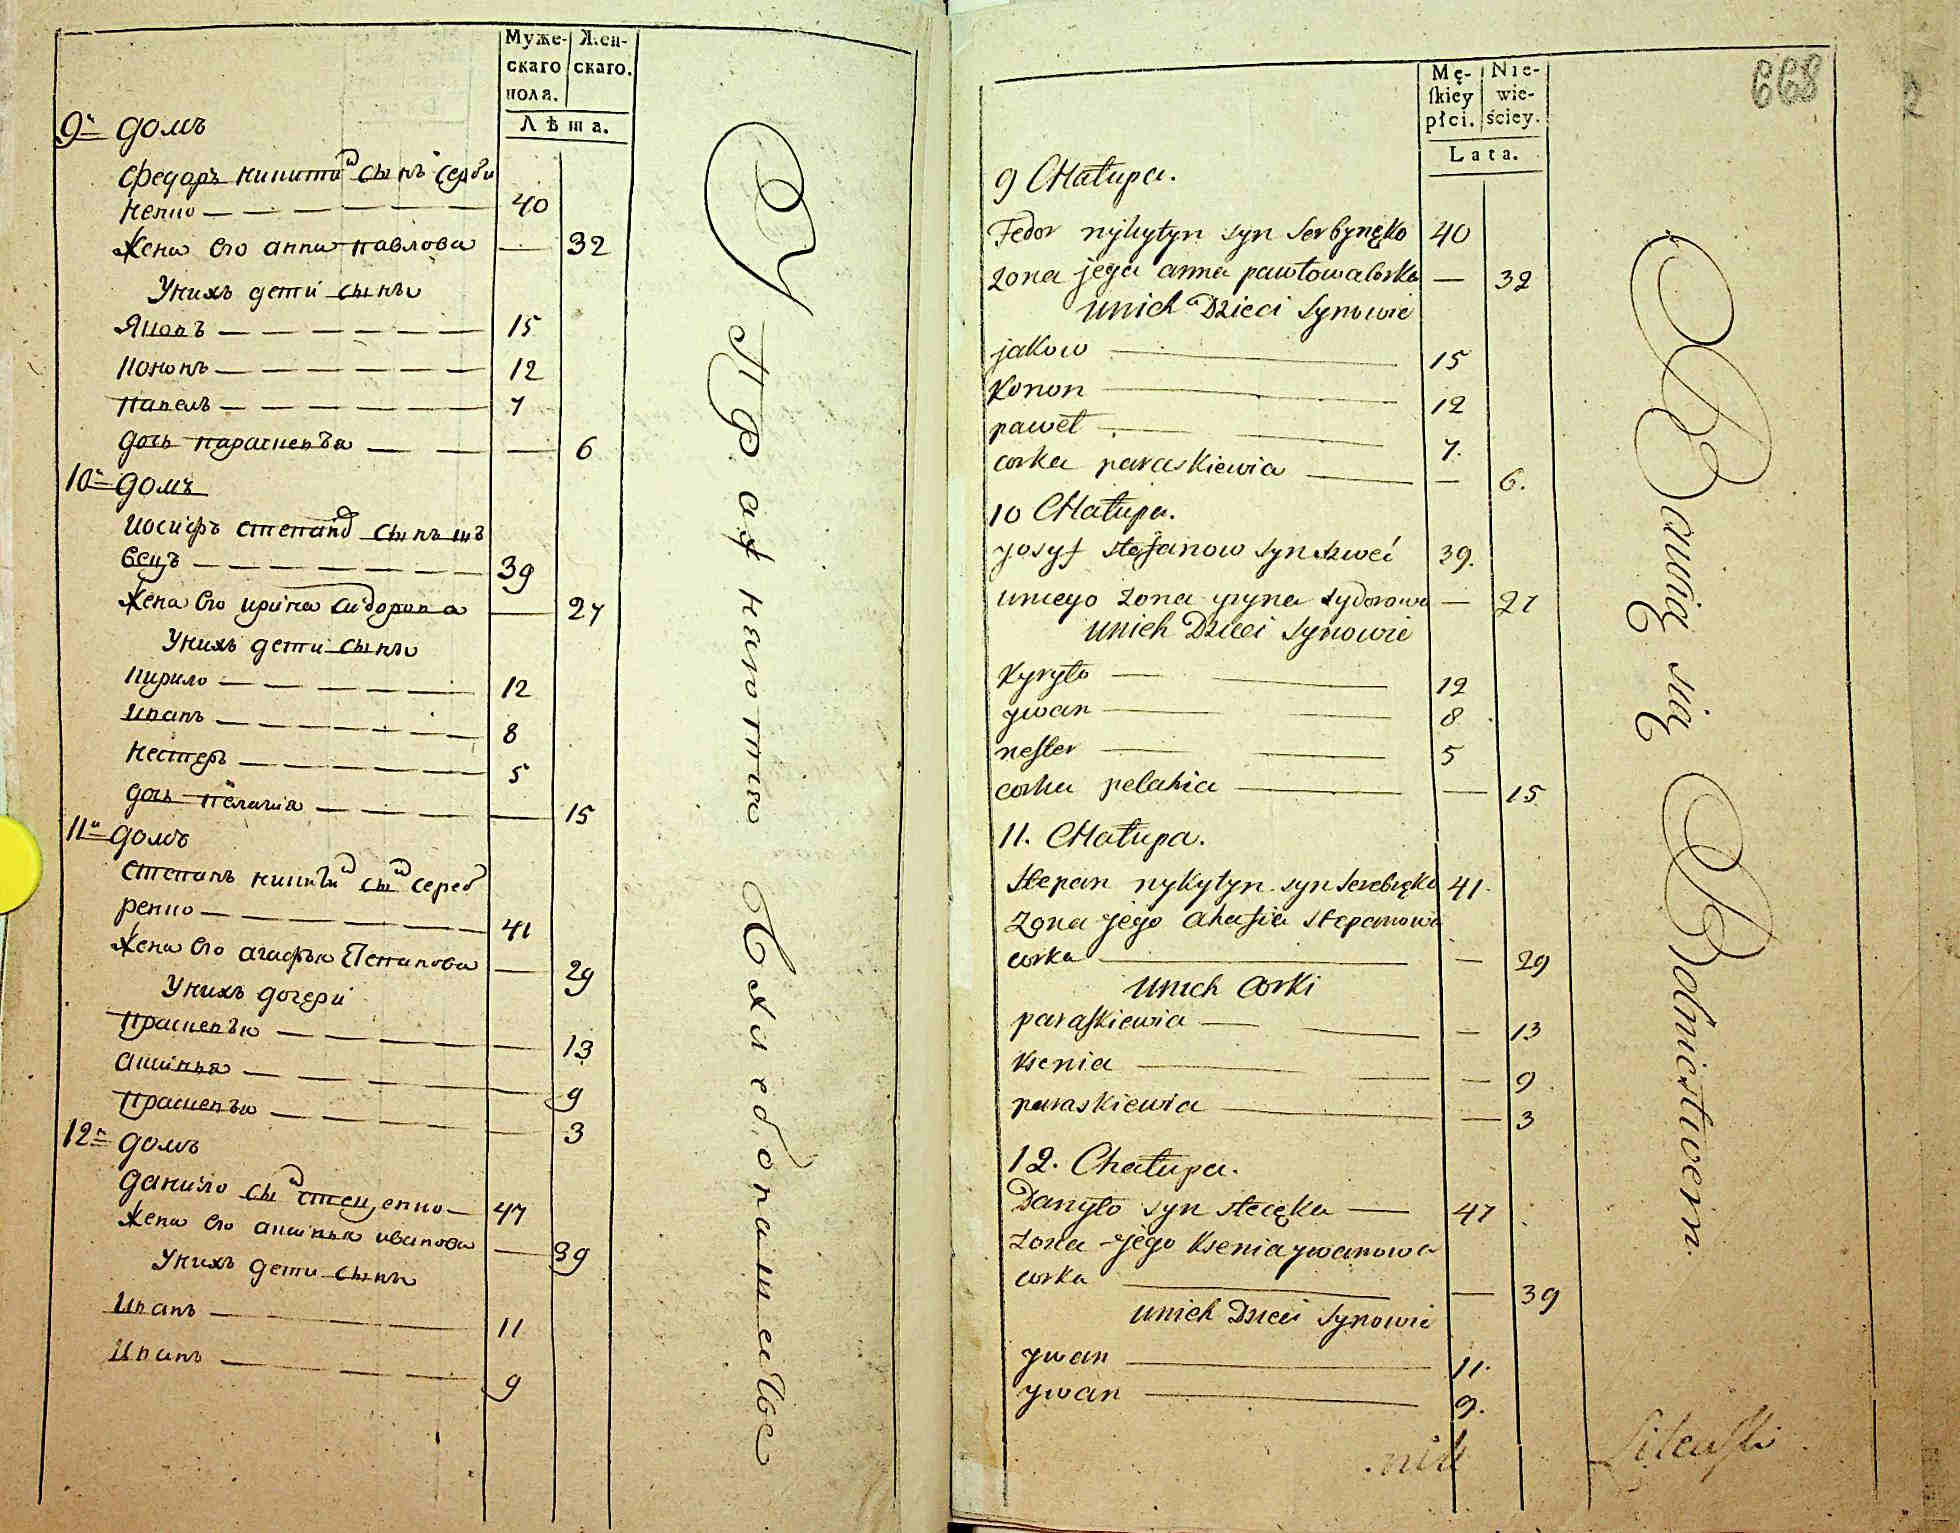 Муже-
скаго
пола.
Жен-
скаго.
Лѣта.
9й домъ
Федоръ никитинъ сынъ серби
ненко — 40
Жена его анна павлова — 32
Унихъ дети сыны
Яковъ — 15
Кононъ — 12
павелъ — 7
дочь парасковѣя — 6
10й домъ
Иосифъ степановъ сынъ ше
вецъ — 39
Жена его ирина сидорова — 27
Унихъ дети сыны
Кирило — 12
Иванъ — 8
Нестеръ — 5
дочь пелагия — 15
11й домъ
Степанъ никитинъ сынъ сереб
ренко — 41
Жена его агафья Степанова — 29
Унихъ дочери
Прасковѣя — 13
аксинья — 9
Прасковѣя — 3
12й домъ
Данило сынъ стеценко — 47
Жена его аксинья иванова — 39
Унихъ дети сыны
Иванъ — 11
Иванъ — 9
Упражняются
Хлебопашемъ
Mę-
ſkiey
płci.
Nie-
wie-
ściey.
Lata.
668
9 CHałupa.
Fedor nykytyn syn Serbynęko 40
żona jega anna pawłowa Corka — 32
unich Dzieci Synowie
jakow — 15
Konon — 12
paweł — 7.
corka paraskiewia — 6.
10 CHałupa.
Josyf stefanow syn szweć 39.
uniego żona yryna sydorowa — 27
unich Dzieci Synowie
Kyryło — 12
ywan — 8
neſter — 5
corka pelahia — 15
11. CHałupa.
Stepan nykytyn syn Serebręko 41.
Żona jego ahafia stepanowa
corka — 29
unich Corki
paraſkiewia — 13
Ksenia — 9
paraskiewia — 3
12. Chałupa.
Danyło syn stecęka — 47
żona jego Ksenia ywanowa
corka — 39
unich Dzieci Synowie
ywan — 11.
ywan — 9.
Bawią się Rolnictwem